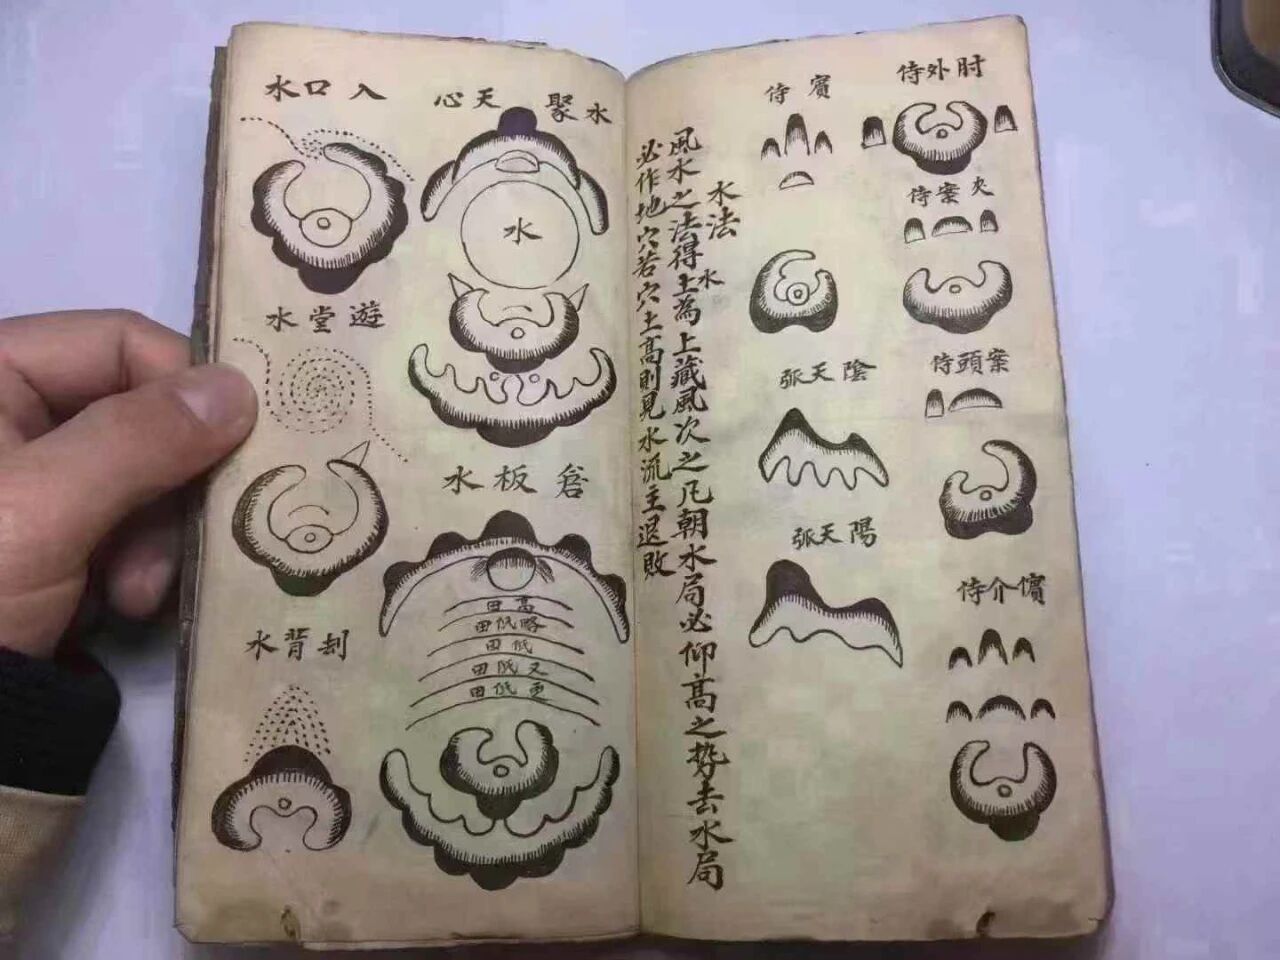 肘外侍
夾案侍
案頭侍
儐介侍
賓侍
陰天张
陽天张
水法
風水之法得土水為上藏風次之凡朝水局必仰高之势去水局
必作地穴若穴土高則見水流主退敗
水聚天心
水
倉板水
高田
略低田
低田
又低田
更低田
入口水
遊堂水
刦背水